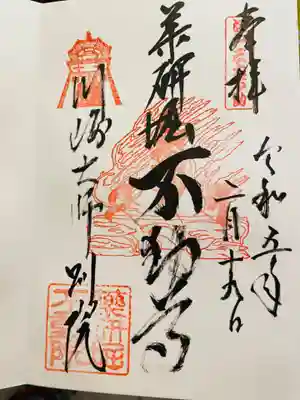 奉拝
令和五年
二月十九日
薬研堀不動尊
川崎大師別院